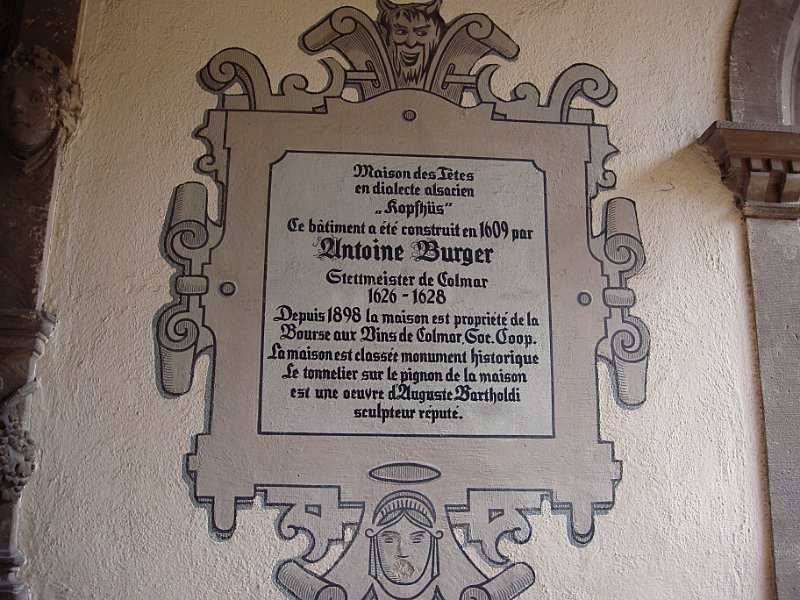 Maison des Têtes
en dialecte alsacien
„Kopfhüs"
Ce bâtiment a été construit en 1609 par
Antoine Burger
Stettmeister de Colmar
1626 - 1628
Depuis 1898 la maison est propriété de la
Bourse aux Vins de Colmar, Soc. Coop.
La maison est classée monument historique
Le tonnelier sur le pignon de la maison
est une oeuvre d'Auguste Bartholdi
sculpteur réputé.